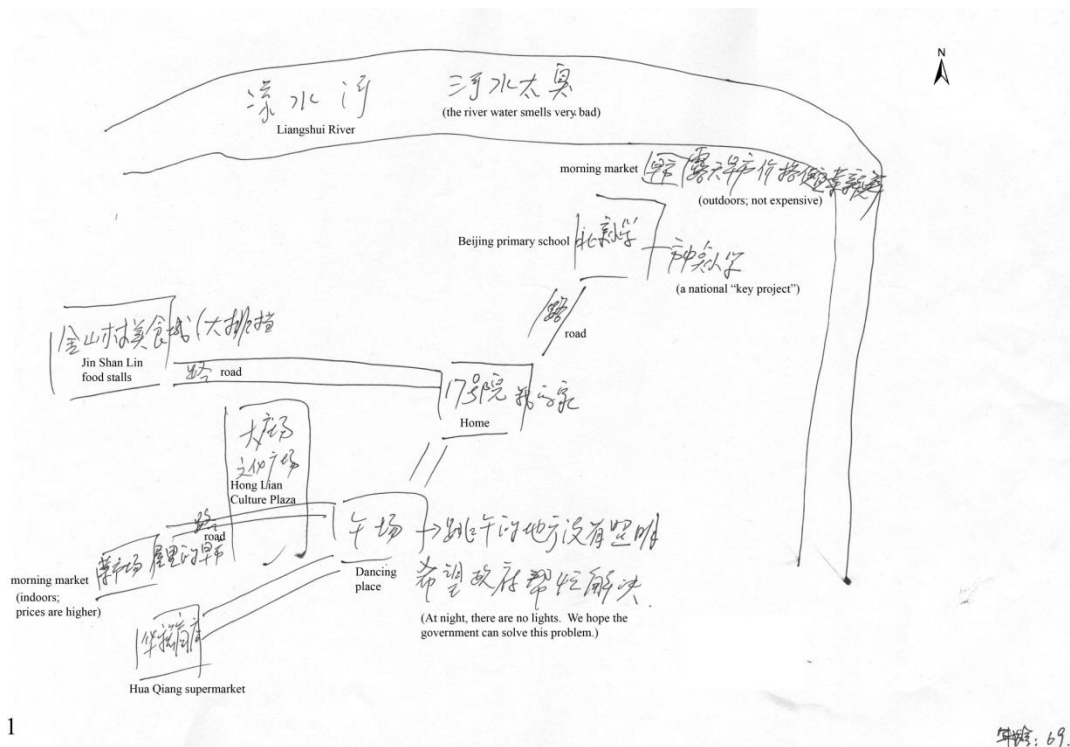 N
凉水河 河水太臭
Liangshui River
(the river water smells very bad)
morning market
早市(露天早市价格便宜
(outdoors; not expensive)
Beijing primary school
北京小学
(a national “key project”)
路
road
金山村美食城(大排档
Jin Shan Lin
food stalls
路 road
17号院 我的家
Home
大广场
文化广场
Hong Lian
Culture Plaza
路
road
午场→跳午的地方没有照明
希望政府帮忙解决.
Dancing
place
(At night, there are no lights. We hope the
government can solve this problem.)
菜市场 屋里的早市
morning market
(indoors;
prices are higher)
Hua Qiang supermarket
1
年龄: 69.